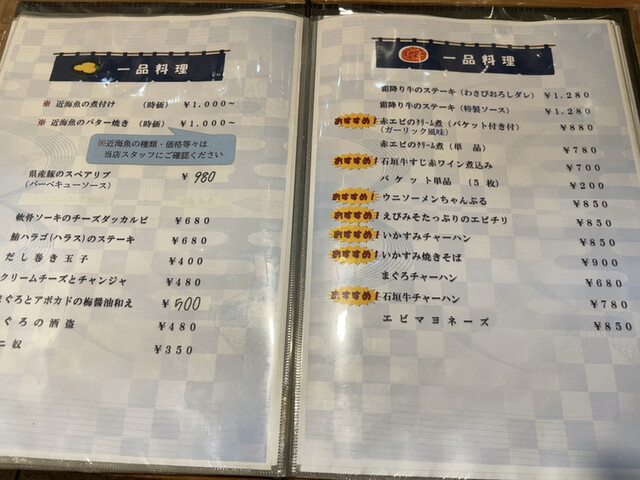 一品料理
※ 近海魚の煮付け (時価) ￥1,000～
※ 近海魚のバター焼き (時価) ￥1,000～
※近海魚の種類・価格等々は
当店スタッフにご確認ください
県産豚のスペアリブ ￥980
(バーベキューソース)
軟骨ソーキのチーズダッカルビ ￥680
鮪ハラゴ(ハラス)のステーキ ￥680
だし巻き玉子 ￥400
クリームチーズとチャンジャ ￥480
まぐろとアボカドの梅醤油和え ￥500
ぐろの酒盗 ￥480
奴 ￥350
一品料理
霜降り牛のステーキ (わさびおろしダレ) ￥1,280
霜降り牛のステーキ (特製ソース) ￥1,280
おすすめ! 赤エビのｸﾘｰﾑ煮 (バケット付き付) ￥880
(ガーリック風味)
赤エビのｸﾘｰﾑ煮 (単 品) ￥780
おすすめ! 石垣牛すじ赤ワイン煮込み ￥700
バケット単品 (5 枚) ￥200
おすすめ! ウニソーメンちゃんぷる ￥850
おすすめ! えびみそたっぷりのエビチリ ￥850
おすすめ! いかすみチャーハン ￥850
おすすめ! いかすみ焼きそば ￥900
まぐろチャーハン ￥680
おすすめ! 石垣牛チャーハン ￥780
エビマヨネーズ ￥850